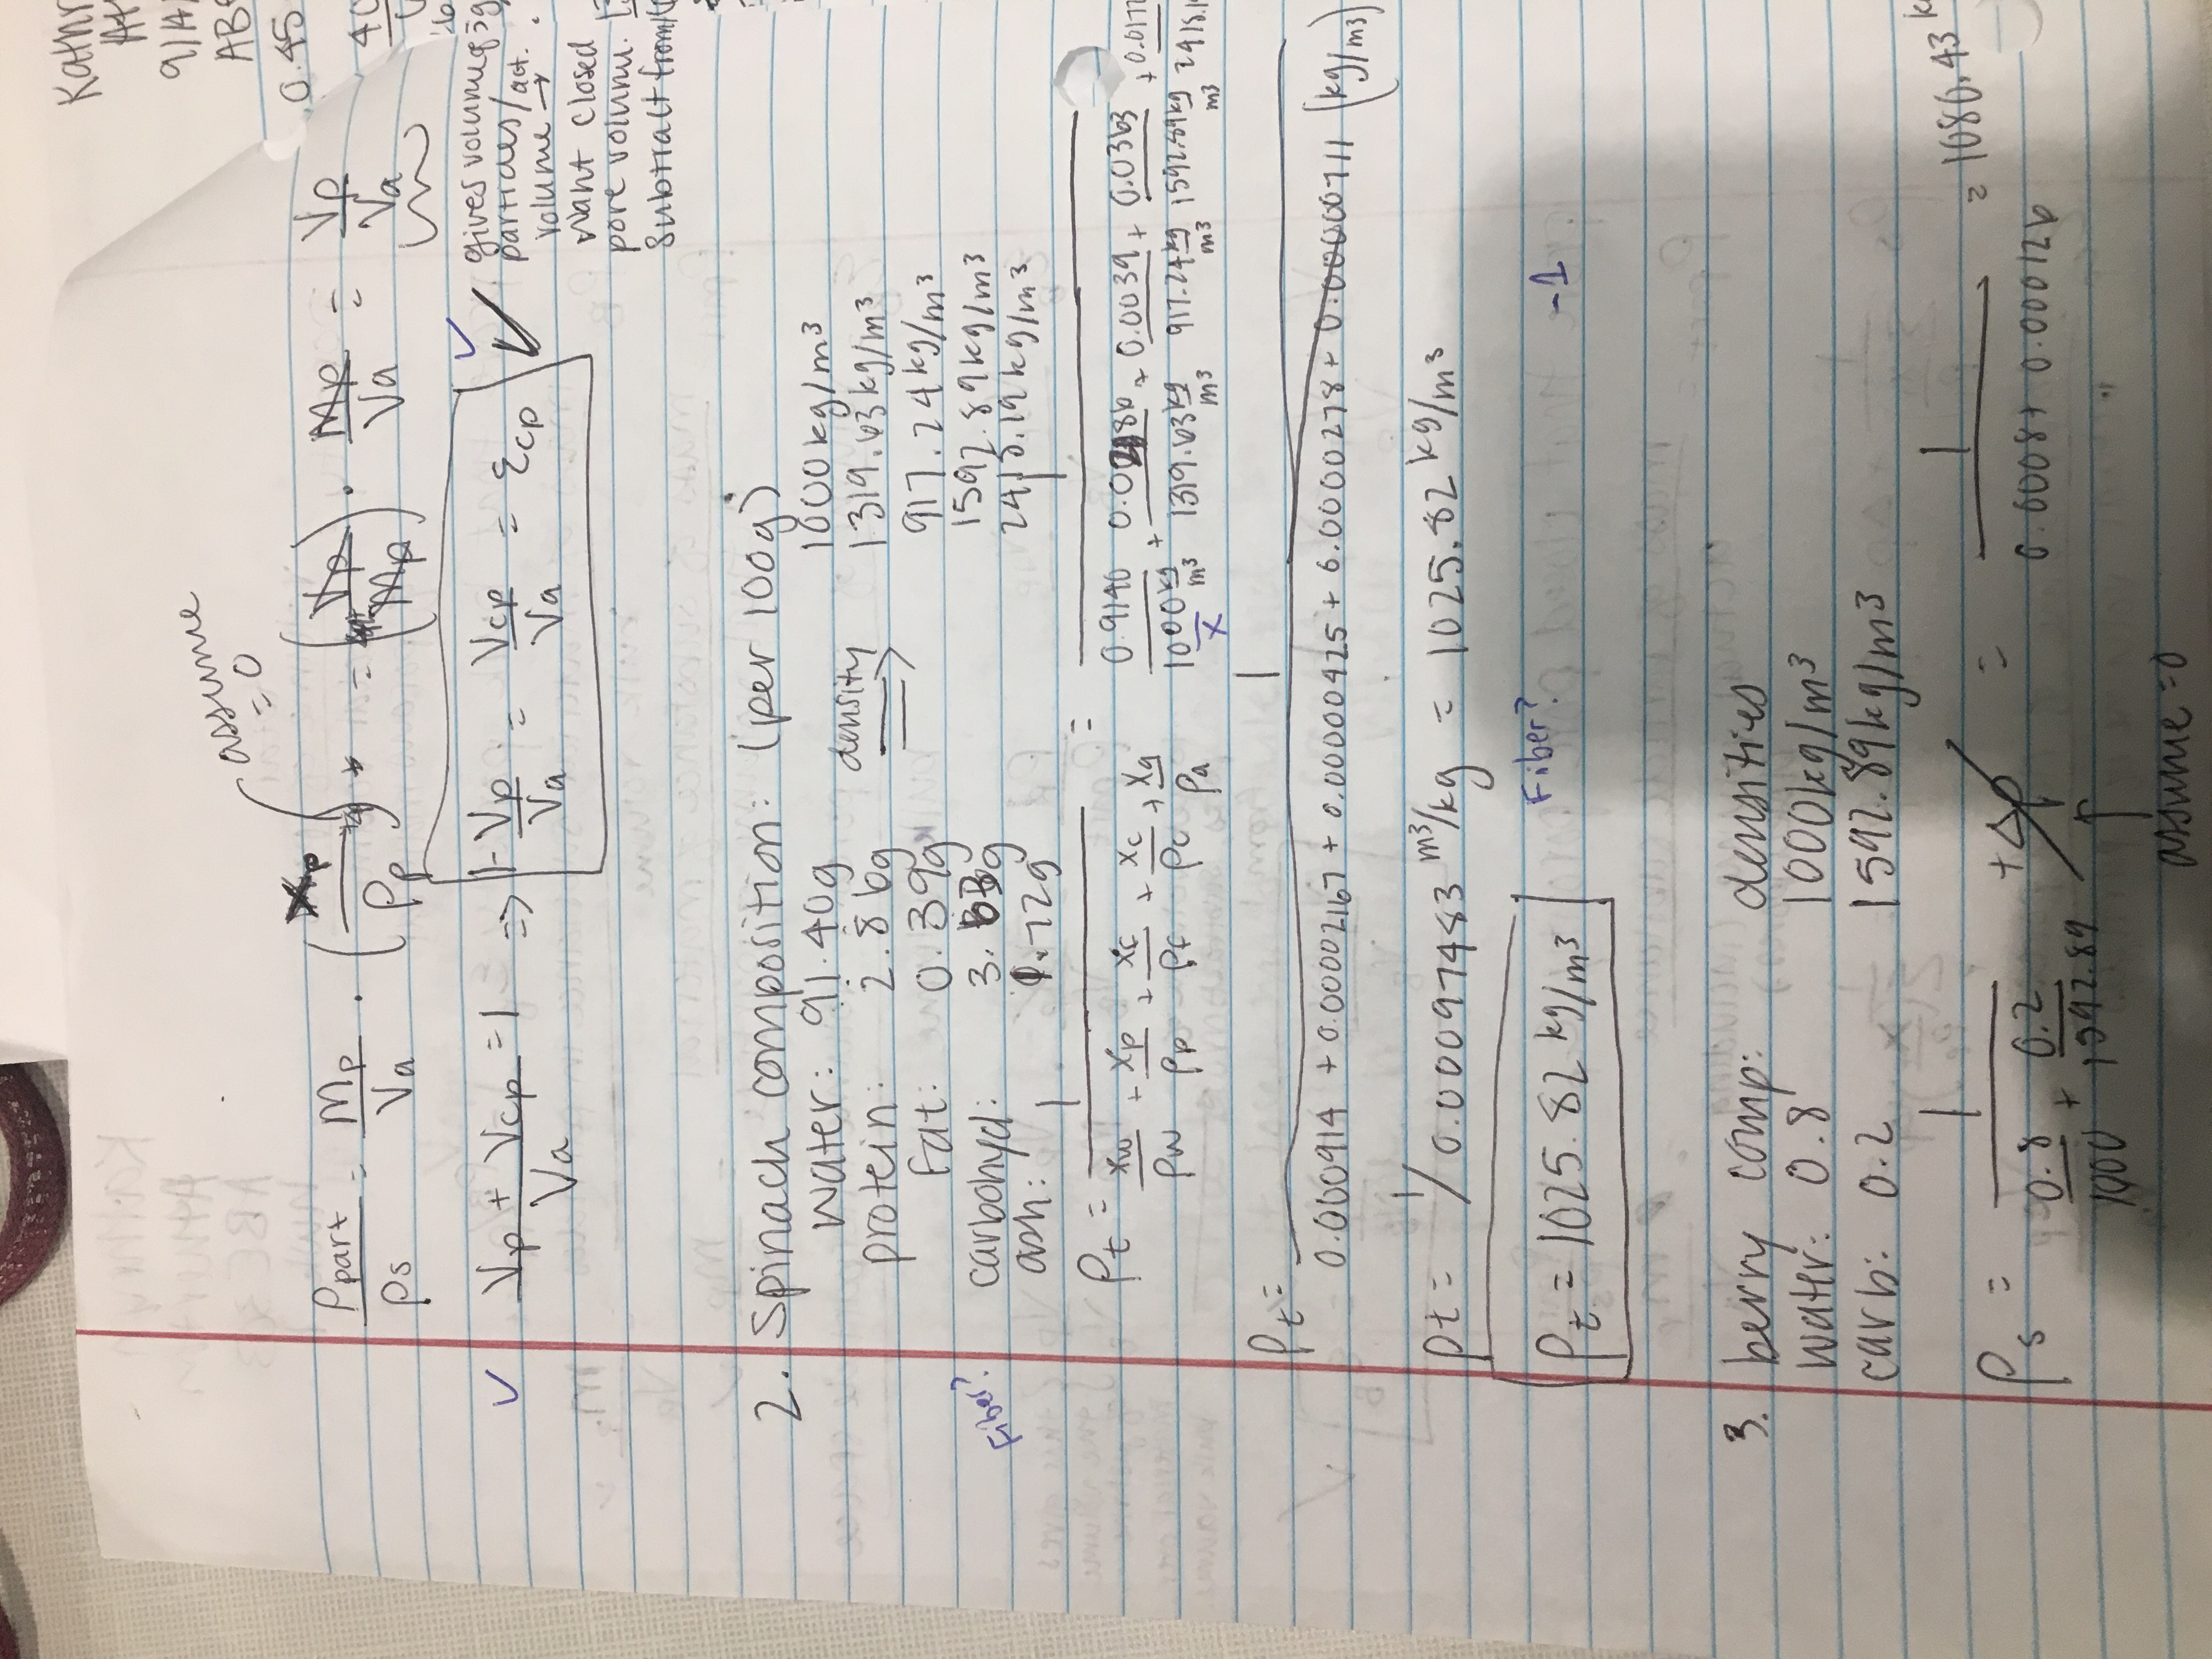 Kathr
9/14/
0.45
assume
= 0
ρpart/ρs = Mp/Va · (Xp/ρp) = (Vp/Mp) · Mp/Va = Vp/Va
✓ (Vp + Vcp)/Va = 1 => 1 - Vp/Va = Vcp/Va = εcp ✓ ✓
gives volume of
particles/act.
volume →
want closed
pore volume.
subtract from
2. Spinach composition: (per 100g)
water: 91.40g 1000 kg/m3
protein: 2.86g density => 1319.63 kg/m3
Fat: 0.39g 917.24 kg/m3
Fiber? carbohyd: 3.63g 1592.89 kg/m3
ash: 1.72g 2418.19 kg/m3
ρt = 1/(xw/ρw + xp/ρp + xf/ρf + xc/ρc + xa/ρa) = 1/(0.9140/1000 kg/m3 + 0.0286/1319.63 kg/m3 + 0.0039/917.24 kg/m3 + 0.0363/1592.89 kg/m3 + 0.0172/2418.1
x
ρt = 1/(0.000914 + 0.00002167 + 0.00000425 + 0.0000278 + 0.00000711 (kg/m3)
ρt = 1/0.00097483 m3/kg = 1025.82 kg/m3
ρt = 1025.82 kg/m3 Fiber? -1
3. berry comp: densities
water: 0.8 1000kg/m3
carb: 0.2 1592.89kg/m3
ρs = 1/(0.8/1000 + 0.2/1592.89) + Δρ = 1/(0.0008 + 0.000126) = 1080.43 k
assume = 0